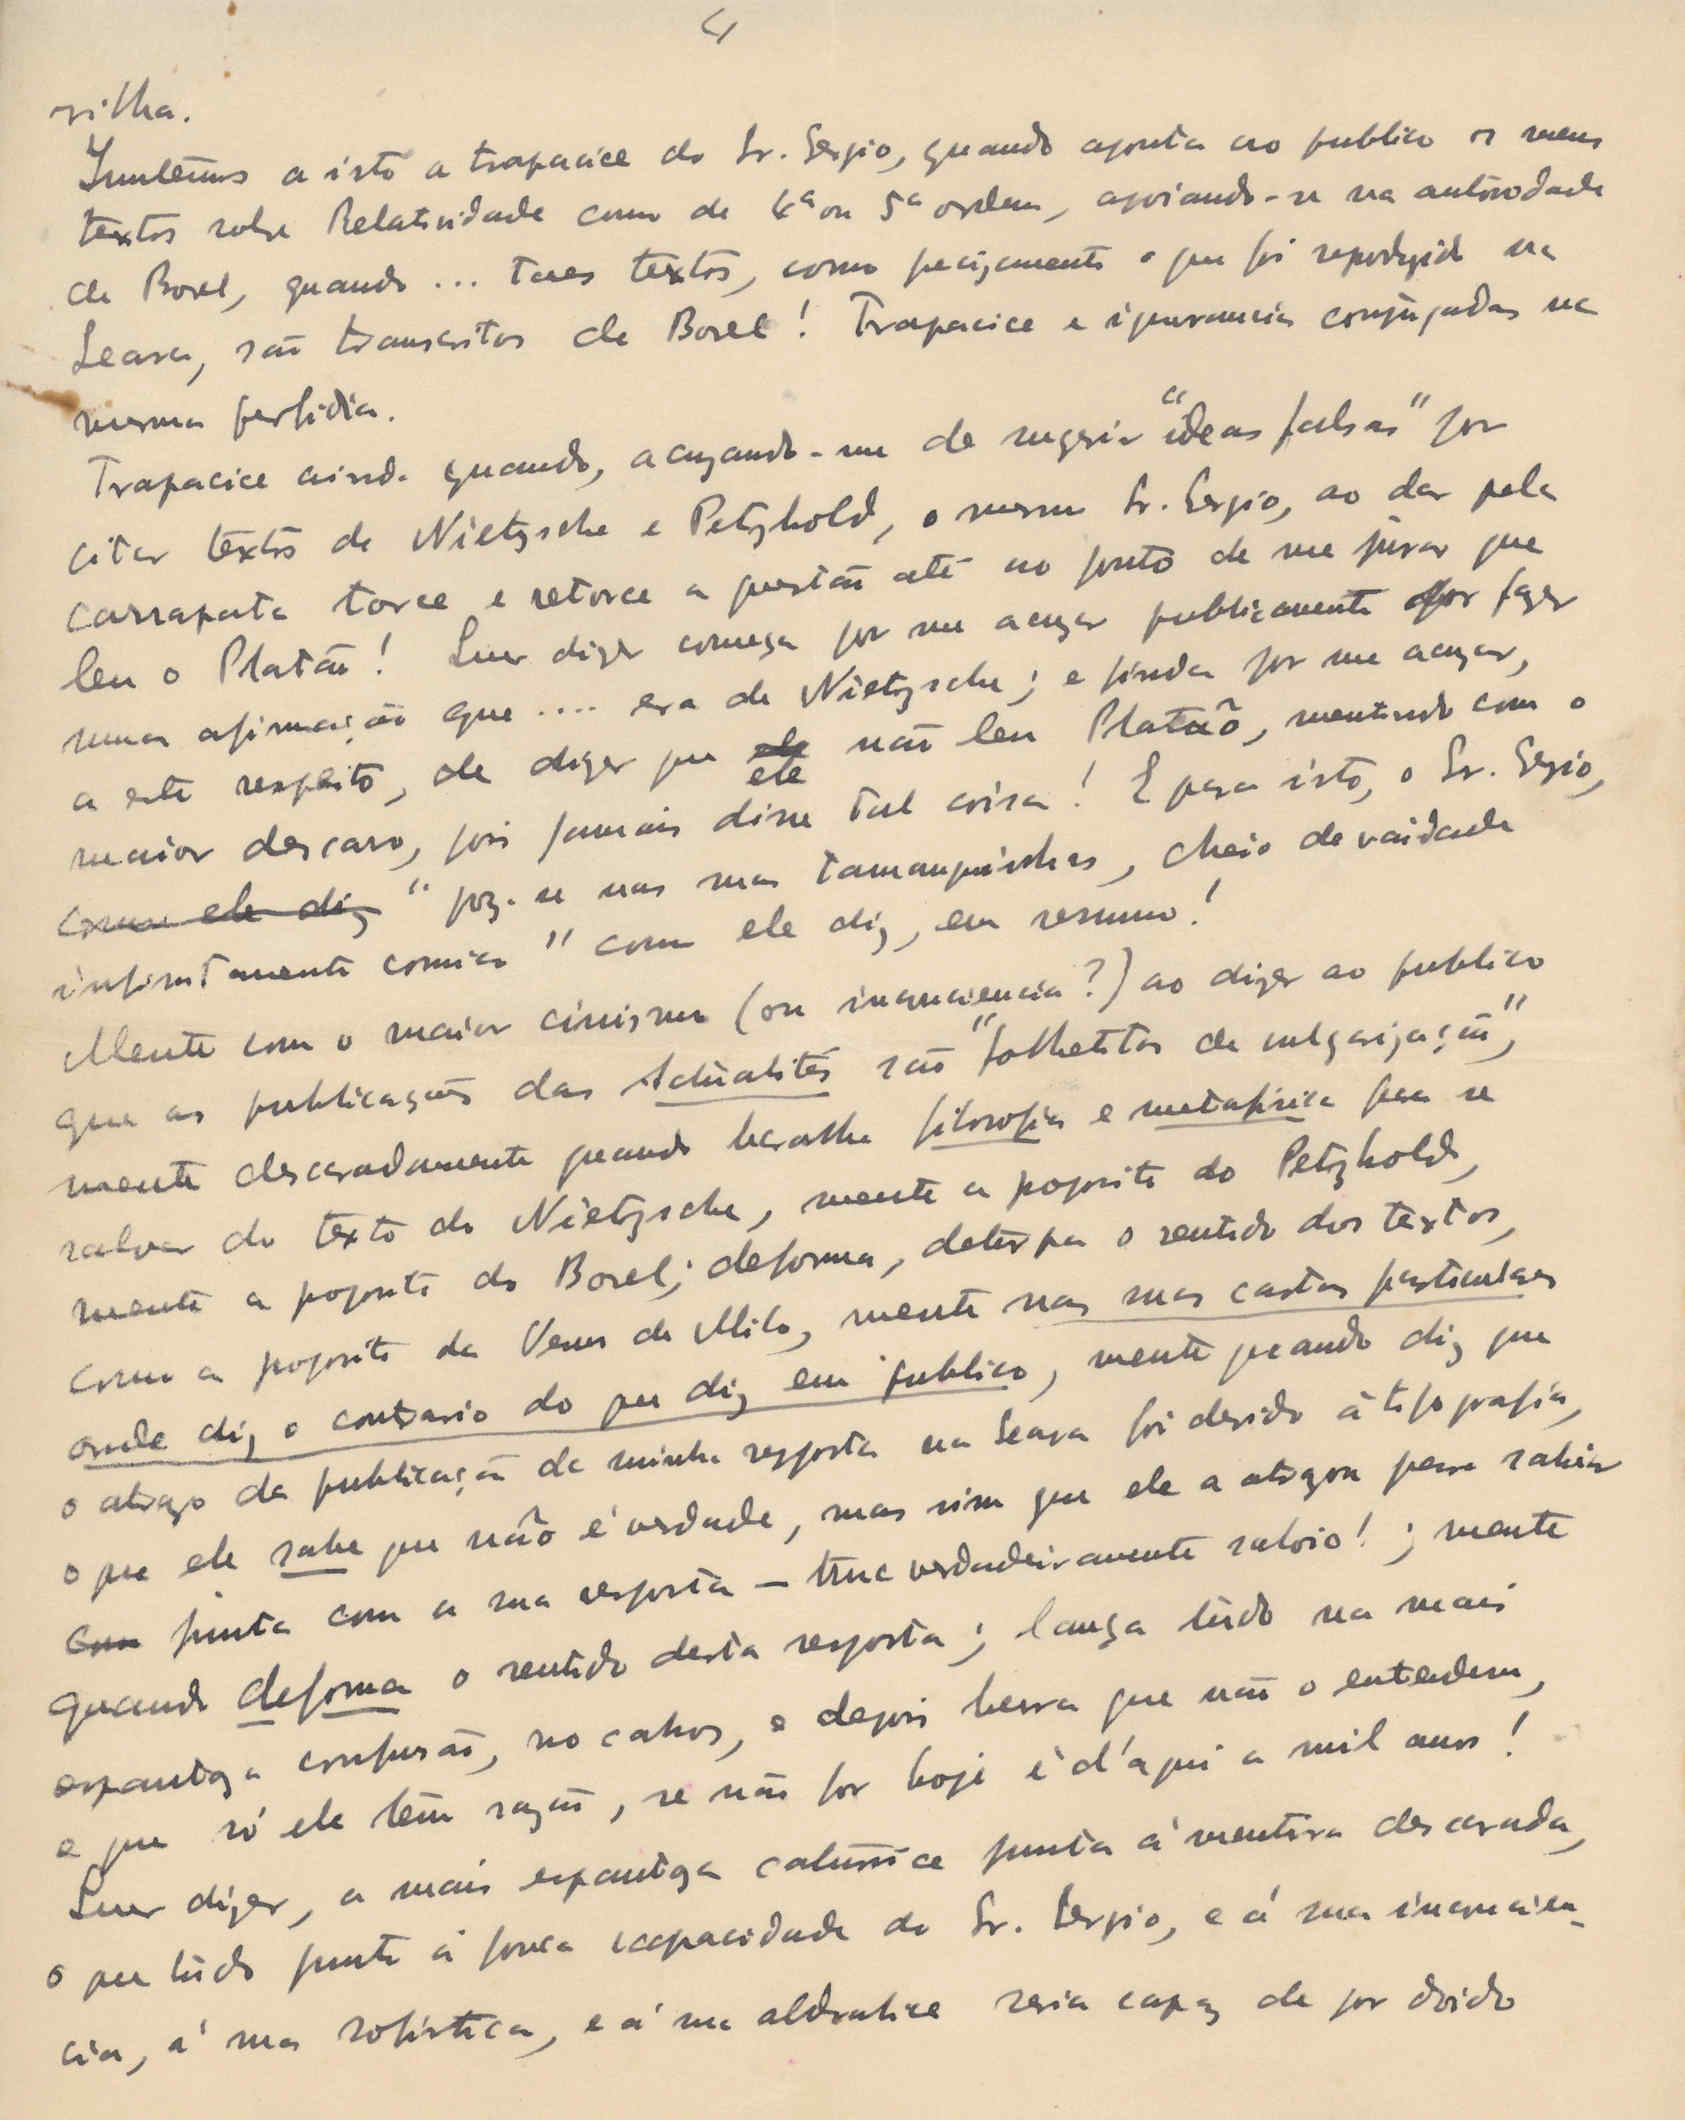 4
rilha.
Juntemos a isto a trapacice do Sr. Sergio, quando aponta ao publico os meus
textos sobre Relatividade como de 4ª ou 5ª ordem, apoiando-se na autoridade
de Borel, quando ... taes textos, como precizamente o que foi reproduzido na
Seara, são transcritos de Borel! Trapacice e ignorancia conjugadas na
mesma perfidia.
Trapacice ainda quando, acuzando-me de sugerir "ideas falsas" por
citar textos de Nietzsche e Petzhold, o mesmo Sr. Sergio, ao dar pela
carrapata torce e retorce a questão até ao ponto de me jurar que
leu o Platão! Quer dizer começa por me acuzar publicamente por fazer
uma afirmação que .... era de Nietzsche; e finda por me acuzar,
a este respeito, de dizer que ele não leu Platão, mentindo com o
ele
maior descaro, pois jamais disse tal coisa! E para isto, o Sr. Sergio,
como ele diz "poz-se nas suas tamanquinhas, cheio de vaidade
infinitamente comica" como ele diz, em resumo!
Mente com o maior cinismo (ou inconsciencia?) ao dizer ao publico
que as publicações das Actualités são "folhetitos de vulgarização",
mente descaradamente quando baralha filosofia e metafisica para se
salvar do texto do Nietzsche, mente a proposito do Petzhold,
mente a proposito do Borel; deforma, deturpa o sentido dos textos,
como a proposito da Venus de Milo, mente nas suas cartas particulares
onde diz o contrario do que diz em publico, mente quando diz que
o atrazo da publicação da minha resposta na Seara foi devido à tipografia,
o que ele sabe que não é verdade, mas sim que ele a atrazou para sahir
com junta com a sua resposta — truc verdadeiramente saloio!; mente
quando deforma o sentido desta resposta; lança tudo na mais
espantoza confusão, no cahos, e depois berra que não o entendem,
e que só ele têm razão, se não for hoje é d'aqui a mil anos!
Quer dizer, a mais espantoza caturrice junta á mentira descarada,
o que tudo junto á pouca capacidade do Sr. Sergio, e á sua inconscien-
cia, á sua sofistica, e á sua aldrabice seria capaz de por doido